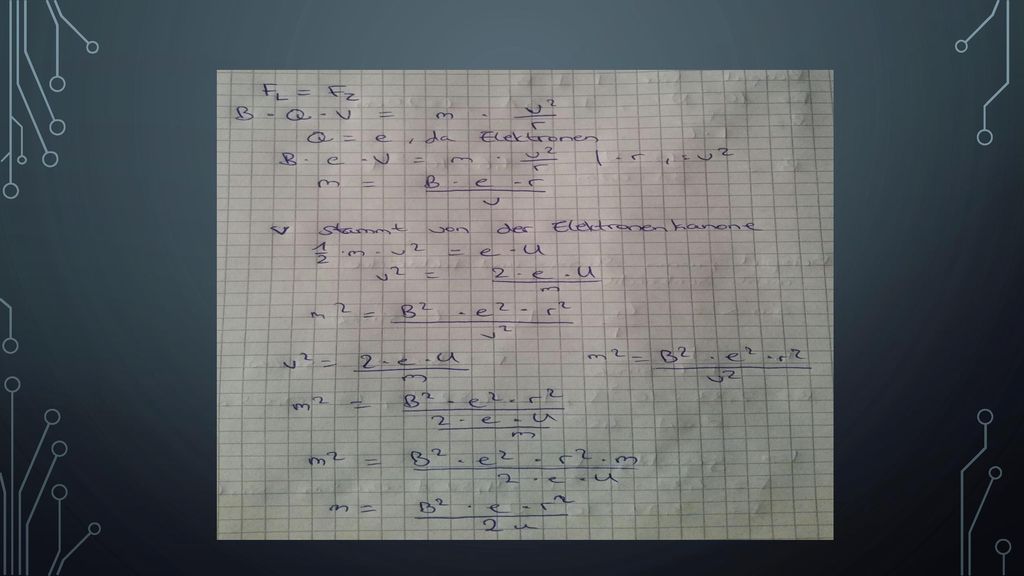 F_L = F_Z
B · Q · v = m · v²/r
Q = e, da Elektronen
B · e · v = m · v²/r | · r, : v²
m = B · e · r / v
v stammt von der Elektronenkanone
1/2 · m · v² = e · U
v² = 2 · e · U / m
m² = B² · e² · r² / v²
v² = 2 · e · U / m    m² = B² · e² · r² / v²
m² = B² · e² · r² / (2 · e · U / m)
m² = B² · e² · r² · m / 2 · e · U
m = B² · e · r² / 2 u